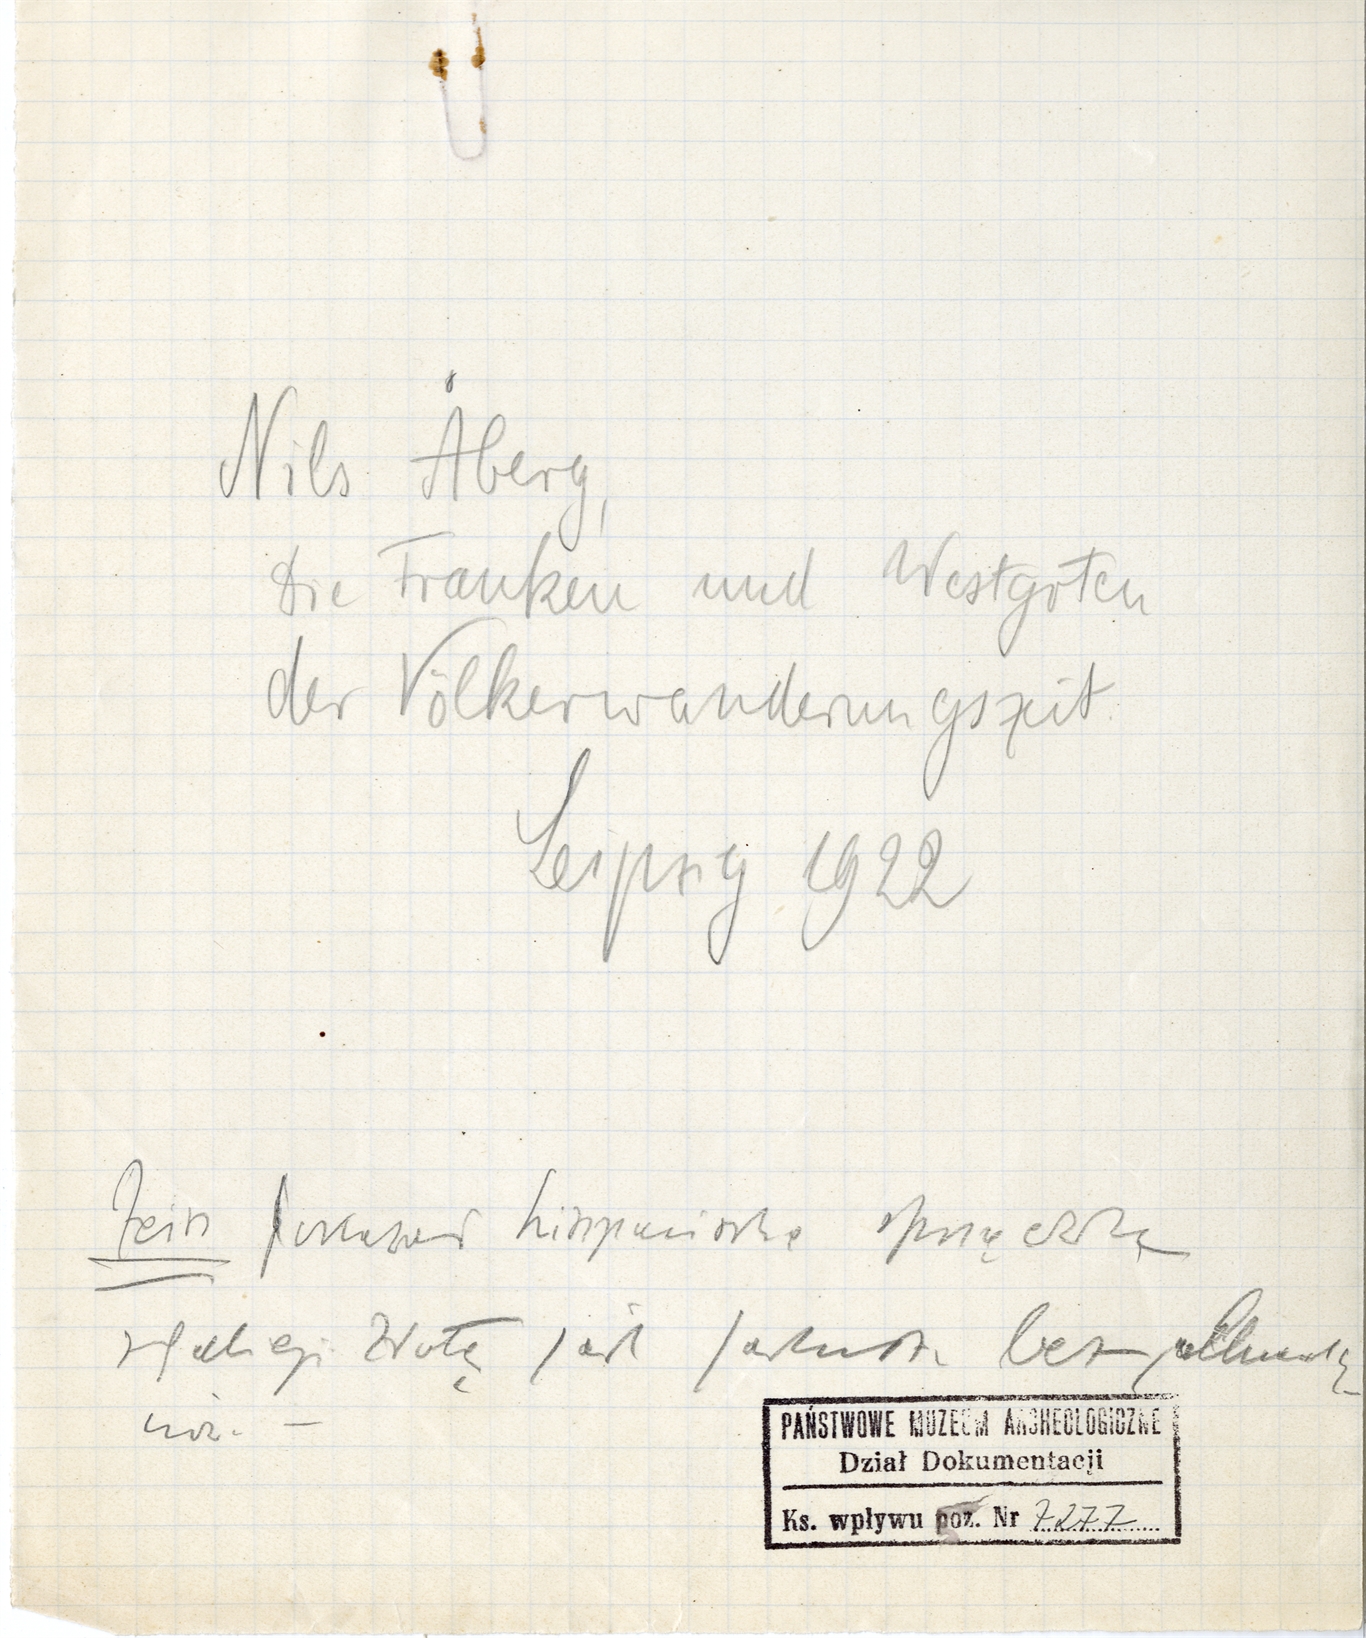 Nils Åberg,
Die Franken und Westgoten
der Völkerwanderungszeit.
Leipzig 1922
Zeiss hiszpańską sprzączkę
złotą jest bez
niż. —
PAŃSTWOWE MUZEUM ARCHEOLOGICZNE
Dział Dokumentacji
Ks. wpływu poz. Nr 7277